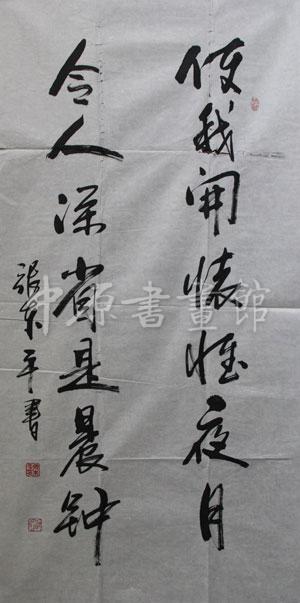 使我開懷惟夜月
令人深省是晨钟
張東平書
中源書畫館